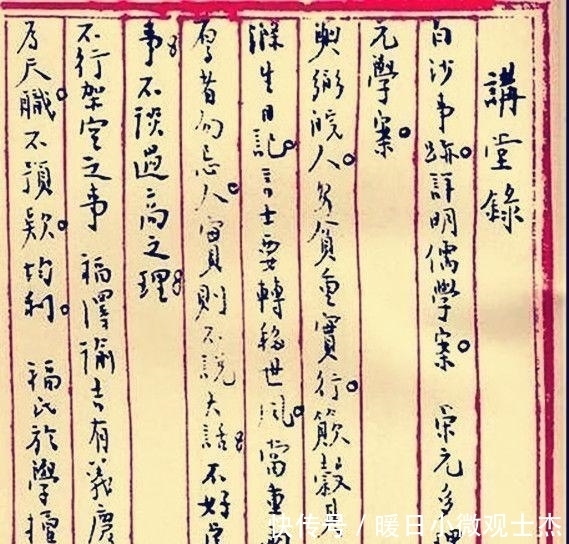 講堂錄
白沙事跡。詳明儒學案。 宋元
元學案。
與弼皖人。貧重實行。簸穀
滌生日記。言士要轉移世風。當重兩
厚者勿忌人。實則不說大話。不好
事。不談過高之理。
不行架空之事 福澤諭吉有義慶
為天職不預款。均利。 福氏於學擅
快传号/暖日小微观士杰